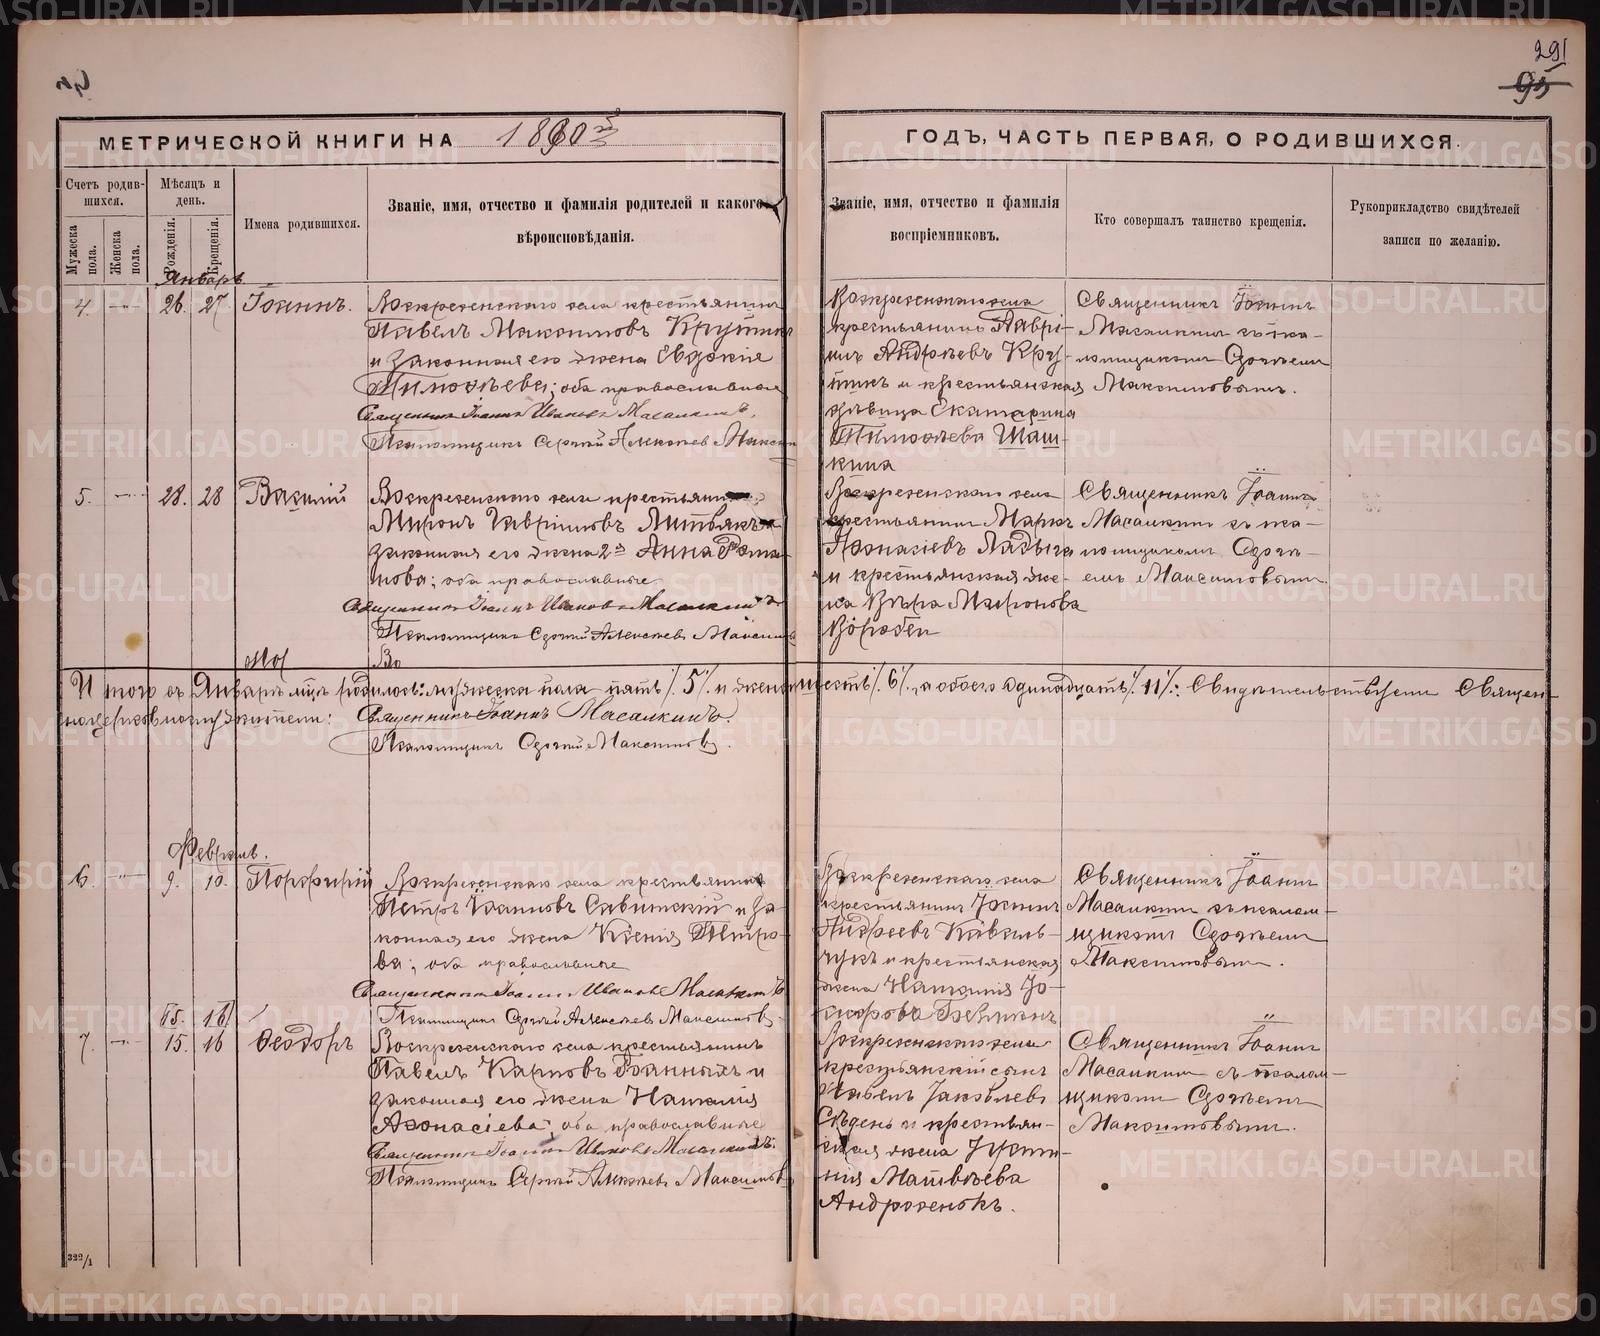 291
95
МЕТРИЧЕСКОЙ КНИГИ НА 1890й
ГОДЪ, ЧАСТЬ ПЕРВАЯ, О РОДИВШИХСЯ.
Счетъ родив-
шихся.
Мужеска пола.
Женска пола.
Мѣсяцъ и день.
Рожденія.
Крещенія.
Имена родившихся.
Званіе, имя, отчество и фамилія родителей и какого
вѣроисповѣданія.
Званіе, имя, отчество и фамилія
воспріемниковъ.
Кто совершалъ таинство крещенія.
Рукоприкладство свидѣтелей
записи по желанію.
Январь
4. 26. 27. Іоаннъ.
Воскресенскаго села крестьянинъ
Павелъ Максимовъ
и законная его жена Евдокія
Тимоѳеева; оба православные
Священникъ Іоаннъ Ивановъ Масалкинъ.
Псаломщикъ Сергѣй Алексѣевъ
Воскресенскаго села
крестьянинъ Гаврі-
илъ Андреевъ Кру-
и крестьянская
дѣвица Екатерина
Тимоѳеева Шаш-
кина
Священникъ Іоаннъ
Масалкинъ съ пса-
ломщикомъ Сергѣемъ
Максимовымъ.
5. 28. 28 Василій
Воскресенскаго села
Миронъ Гавріиловъ Литвякъ
законная его жена 2я Анна
оба православные
Священникъ Іоаннъ Ивановъ Масалкинъ
Псаломщикъ Сергѣй Алексѣевъ
Воскресенскаго села
крестьянинъ Маркъ
Аѳонасіевъ Ладыга
и крестьянская же-
на Вѣра Миронова
Воробей
Священникъ Іоаннъ
Масалкинъ съ пса-
ломщикомъ Сергѣ-
емъ Максимовымъ.
Итого въ Январѣ мцѣ родилось: мужеска пола пять /5/ и женска шесть /6/, а обоего одинадцать /11/: Свидѣтельствуемъ Священ-
ноцерковнослужители: Священникъ Іоаннъ Масалкинъ.
Псаломщикъ Сергѣй Максимовъ.
Февраль.
6. 9. 10. Порфирій
Воскресенскаго села крестьянинъ
Петръ Іоанновъ Савитскій и за-
конная его жена Ксенія Петро-
ва; оба православные
Священникъ Іоаннъ Ивановъ Масалкинъ
Псаломщикъ Сергѣй Алексѣевъ Максимовъ
Воскресенскаго села
крестьянинъ Іоаннъ
Андреевъ Коваль-
чукъ и крестьянская
жена Наталія Іо-
Священникъ Іоаннъ
Масалкинъ съ псалом-
щикомъ Сергѣемъ
Максимовымъ.
15. 16
7. 15. 16 Ѳеодоръ
Воскресенскаго села крестьянинъ
Павелъ Карповъ и
законная его жена Наталія
Аѳонасіева; оба православные
Священникъ Іоаннъ Ивановъ Масалкинъ.
Псаломщикъ Сергѣй Алексѣевъ Максимовъ
Воскресенскаго села
крестьянскій сынъ
Павелъ Іаковлевъ
и крестьян-
ская жена Іусти-
нія Матвѣева
Андросенокъ.
Священникъ Іоаннъ
Масалкинъ съ псалом-
щикомъ Сергѣемъ
Максимовымъ.
322/1
METRIKI.GASO-URAL.RU